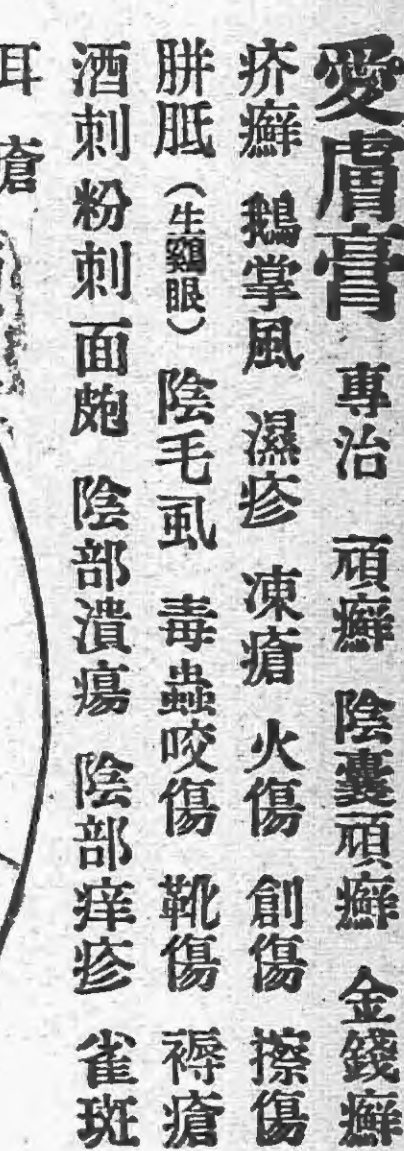 愛膚膏 專治 頑癬 陰囊頑癬 金錢癬
疥癬 鵝掌風 濕疹 凍瘡 火傷 創傷 擦傷
胼胝（生鷄眼）陰毛虱 毒蟲咬傷 靴傷 褥瘡
酒刺 粉刺 面皰 陰部潰瘍 陰部痒疹 雀斑
耳 瘡